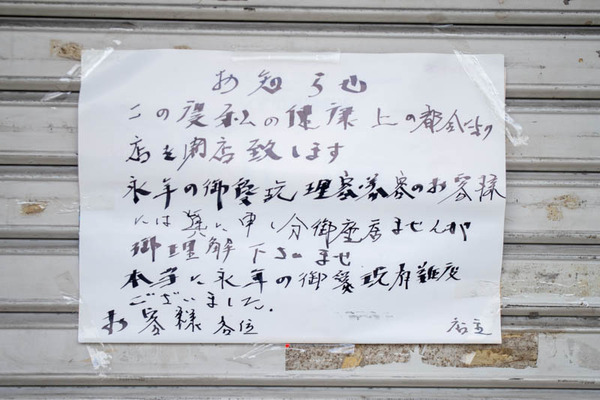 お知らせ
この度私の健康上の都合により
店を閉店致します
永年の御愛玩理容業容のお客様
には真に申し分御座居ませんが
御理解下さいませ
本当に永年の御愛玩有難度
ございました。
お客様各位
店主